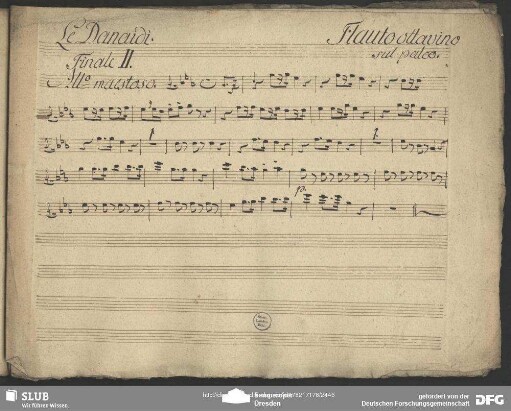 Le Danaidi.
Flauto ottavino
sul palco.
Finale II.
All.o maestoso.
1.
po.
SLUB
Wir führen Wissen.
Dresden
gefördert von der
Deutschen Forschungsgemeinschaft
DFG